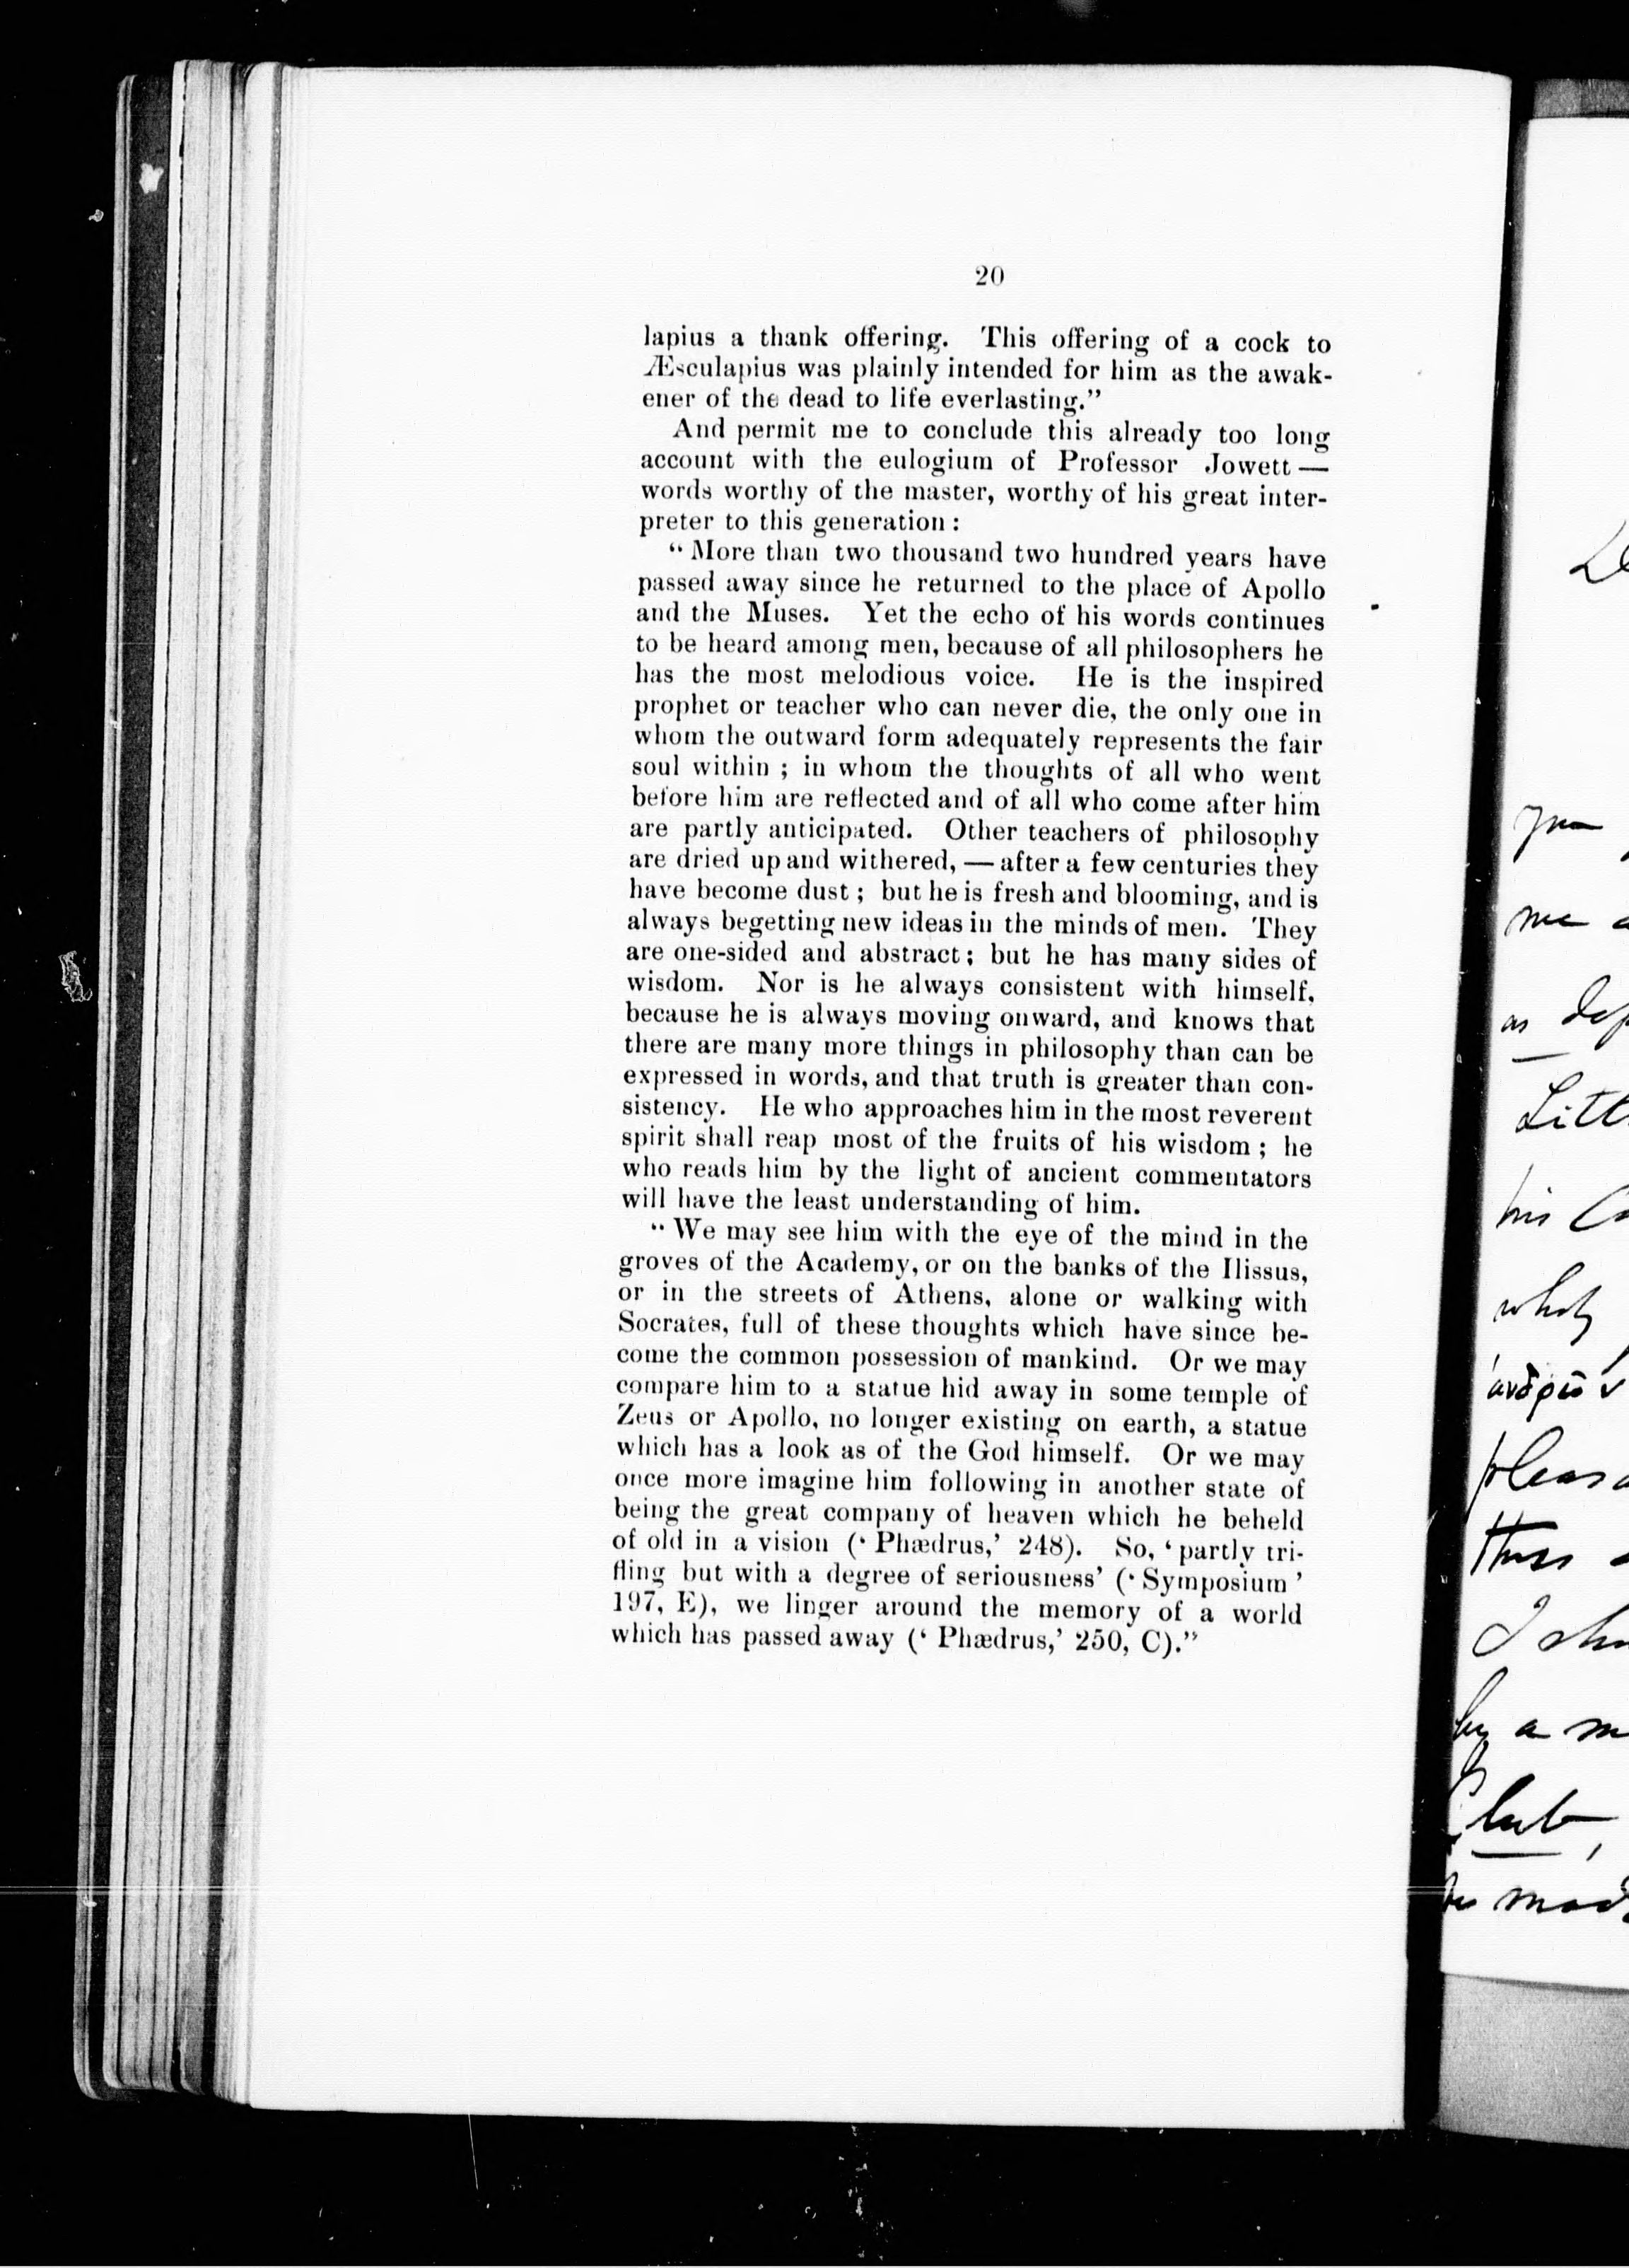 20
lapius a thank offering. This offering of a cock to
Æsculapius was plainly intended for him as the awak-
ener of the dead to life everlasting.”
And permit me to conclude this already too long
account with the eulogium of Professor Jowett —
words worthy of the master, worthy of his great inter-
preter to this generation :
“ More than two thousand two hundred years have
passed away since he returned to the place of Apollo
and the Muses. Yet the echo of his words continues
to be heard among men, because of all philosophers he
has the most melodious voice. He is the inspired
prophet or teacher who can never die, the only one in
whom the outward form adequately represents the fair
soul within ; in whom the thoughts of all who went
before him are reflected and of all who come after him
are partly anticipated. Other teachers of philosophy
are dried up and withered, — after a few centuries they
have become dust ; but he is fresh and blooming, and is
always begetting new ideas in the minds of men. They
are one-sided and abstract ; but he has many sides of
wisdom. Nor is he always consistent with himself,
because he is always moving onward, and knows that
there are many more things in philosophy than can be
expressed in words, and that truth is greater than con-
sistency. He who approaches him in the most reverent
spirit shall reap most of the fruits of his wisdom ; he
who reads him by the light of ancient commentators
will have the least understanding of him.
“ We may see him with the eye of the mind in the
groves of the Academy, or on the banks of the Ilissus,
or in the streets of Athens, alone or walking with
Socrates, full of these thoughts which have since be-
come the common possession of mankind. Or we may
compare him to a statue hid away in some temple of
Zeus or Apollo, no longer existing on earth, a statue
which has a look as of the God himself. Or we may
once more imagine him following in another state of
being the great company of heaven which he beheld
of old in a vision (‘ Phædrus,’ 248). So, ‘ partly tri-
fling but with a degree of seriousness’ (‘ Symposium ’
197, E), we linger around the memory of a world
which has passed away (‘ Phædrus,’ 250, C).”
me
as
his
I
by a
Club,